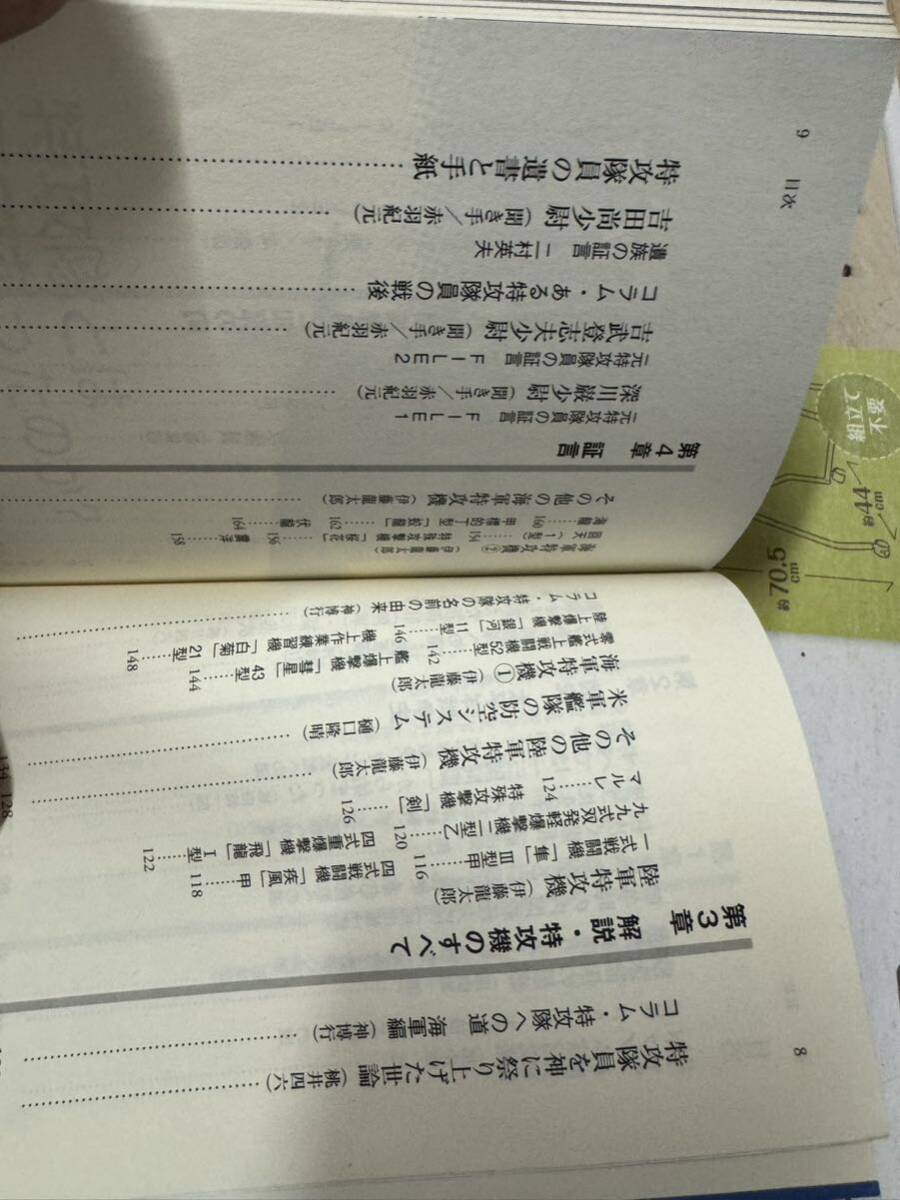 8
特攻隊員を神に祭り上げた世論（桃井四六）
コラム・特攻隊への道 海軍編（神博行）
第3章 解説・特攻機のすべて
陸軍特攻機（伊藤龍太郎）
一式戦闘機「隼」Ⅲ型甲……116 四式戦闘機「疾風」甲……118
九九式双発軽爆撃機二型乙……120 四式重爆撃機「飛龍」Ⅰ型……122
マルレ……124 特殊攻撃機「剣」……126
その他の陸軍特攻機（伊藤龍太郎）
128
米軍艦隊の防空システム（樋口隆晴）
海軍特攻機①（伊藤龍太郎）
零式艦上戦闘機52型……142 艦上爆撃機「彗星」43型……144
陸上爆撃機「銀河」11型……146 機上作業練習機「白菊」21型……148
コラム・特攻隊の名前の由来（神博行）
海軍特攻機②（伊藤龍太郎）
回天（一型）……154 特殊攻撃機「桜花」……156 震洋……158
海龍……160 甲標的丁型「蛟龍」……162 伏龍……164
その他の海軍特攻機（伊藤龍太郎）
第4章 証言
元特攻隊員の証言 FILE1
深川巌少尉（聞き手／赤羽紀元）
元特攻隊員の証言 FILE2
吉武登志夫少尉（聞き手／赤羽紀元）
コラム・ある特攻隊員の戦後
遺族の証言 二村英夫
吉田尚少尉（聞き手／赤羽紀元）
特攻隊員の遺書と手紙
9 目次
組立て
不要
約44cm
約70.5cm